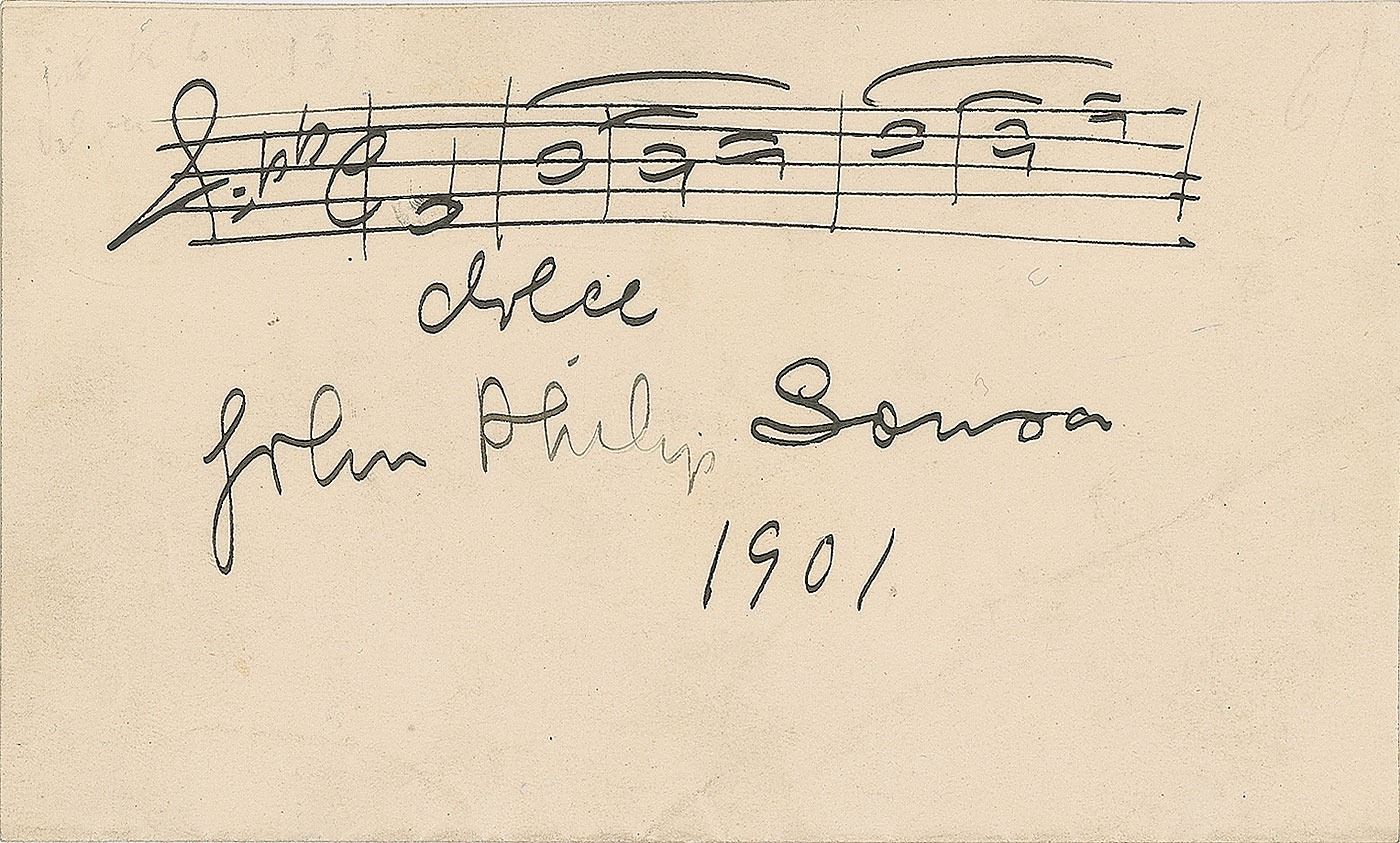 dolce
John Philip Sousa
1901